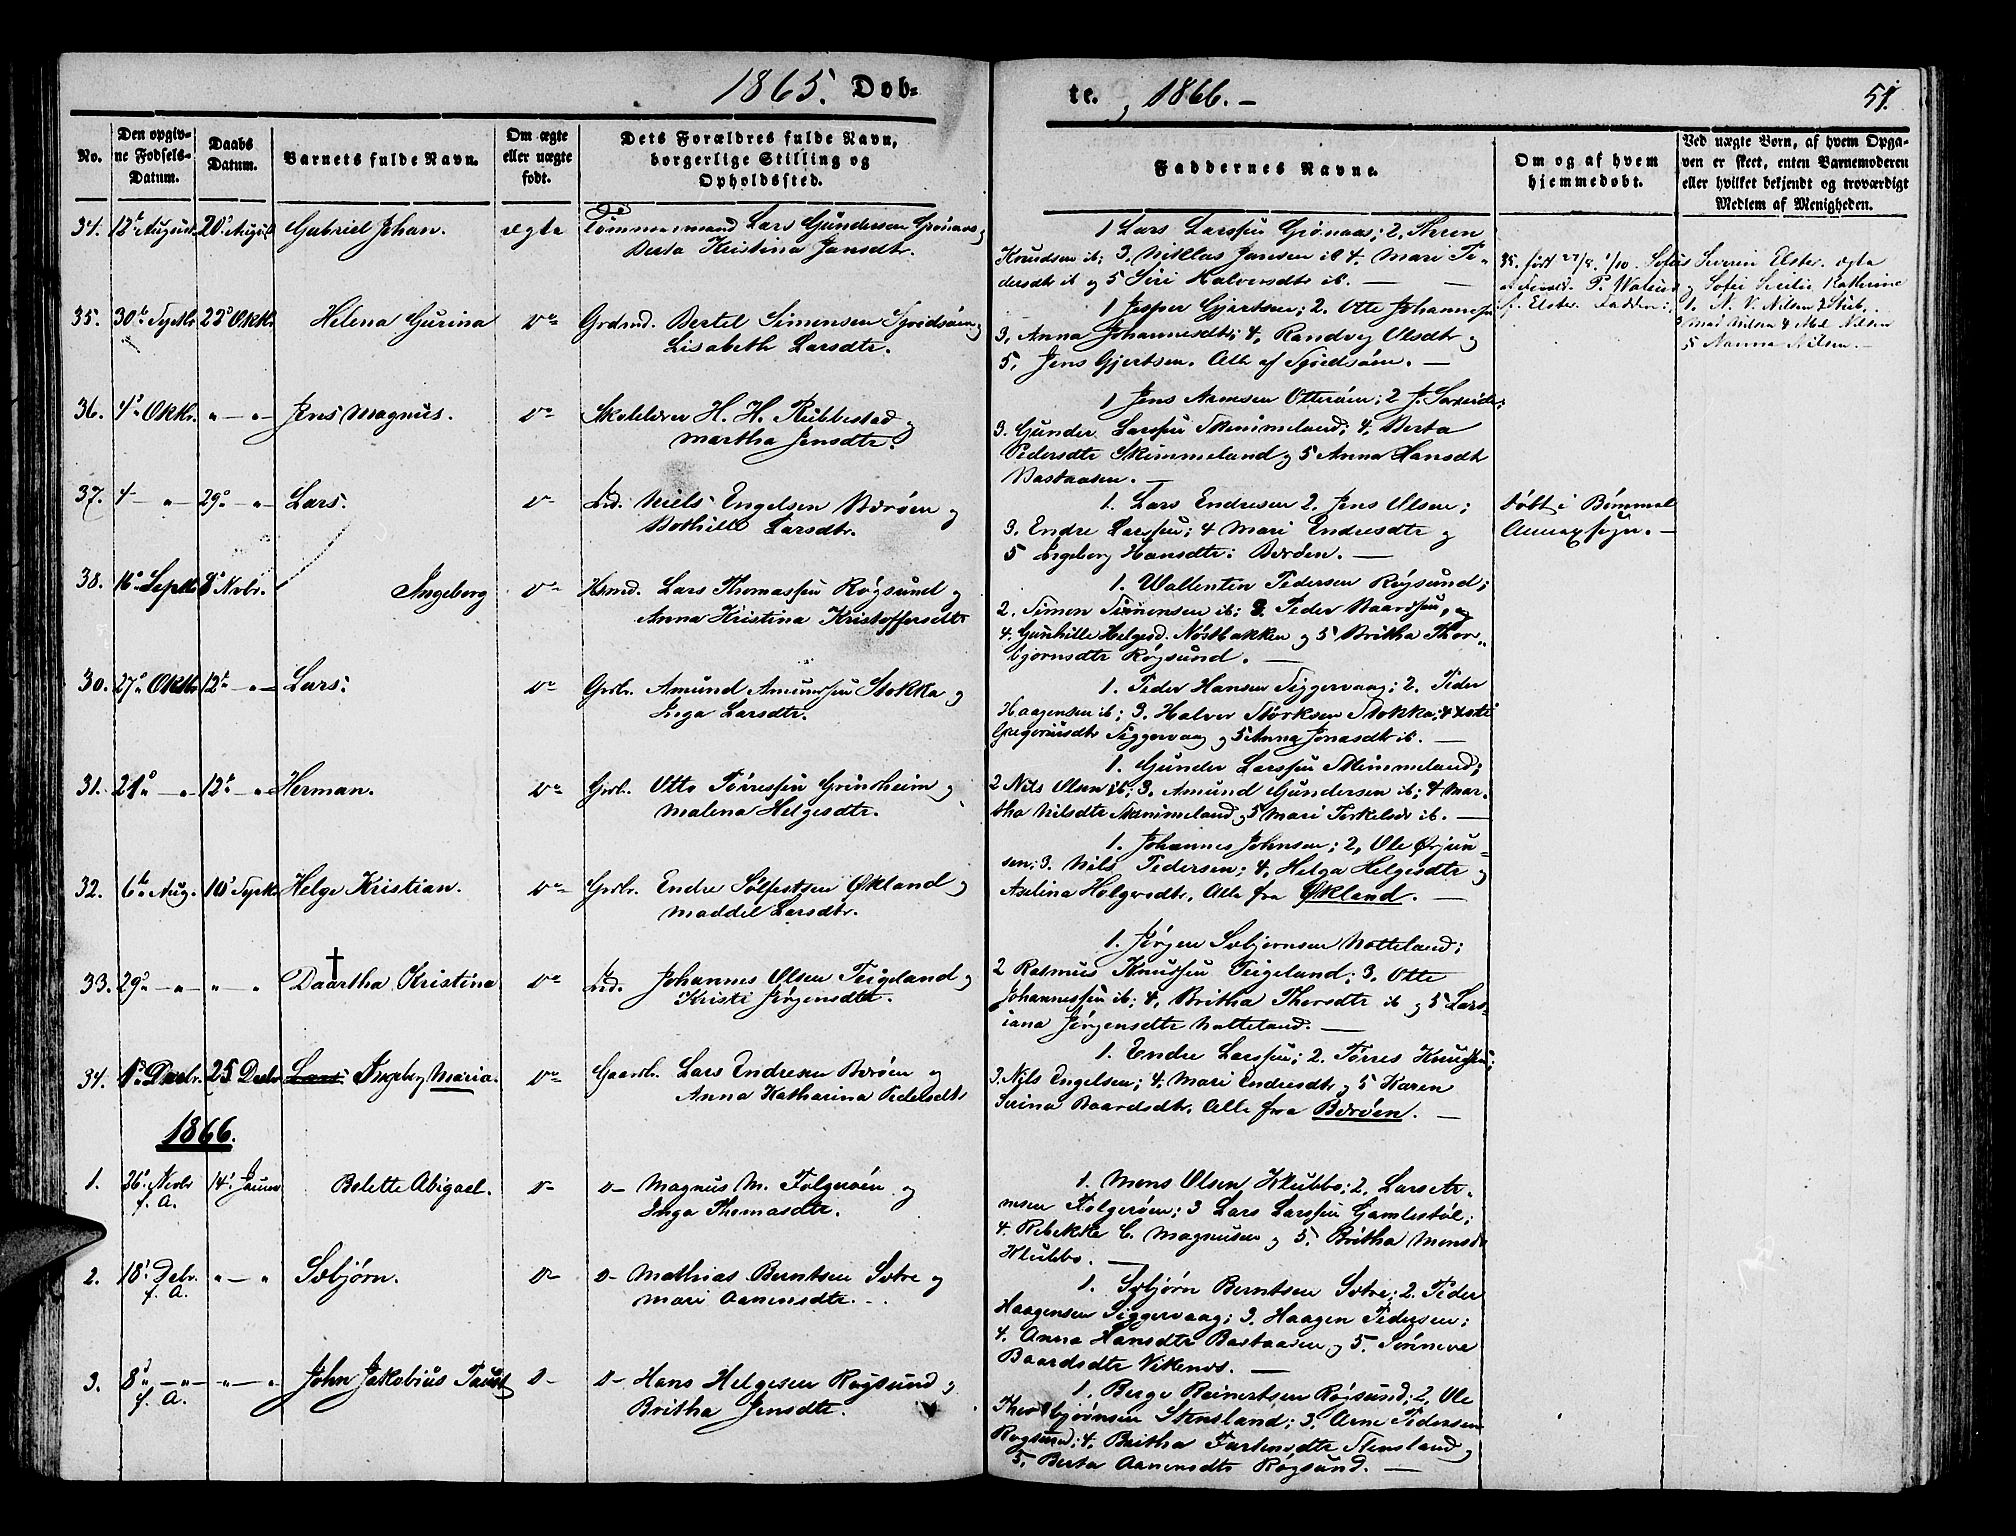 1865. Døb-
te. 1866. -
51.
No.
Den opgiv-
ne Fødsels-
Datum.
Daabs
Datum.
Barnets fulde Navn.
Om ægte
eller uægte
født.
Dets Forældres fulde Navn,
borgerlige Stilling og
Opholdssted.
Faddernes Navne.
Om og af hvem
hjemmedøbt.
Ved uægte Børn, af hvem Opga-
ven er skeet, enten Barnemoderen
eller hvilket bekjendt og troværdigt
Medlem af Menigheden.
34. 12te August 20de August Gabriel Johan. ægte Tømmermand Lars Gundersen Grønaas og
Berta Kristina Jansdtr.
1 Lars Larssen Grønaas; 2.
Knudsen ib; 3. Niklas Jansen ib 4. Mari Pe-
dersdtr ib og 5 Siri Halversdtr ib. —
35. født 27/8. 1/10. Sofus Severin Elster. ægte
P. Valeur og Sofie Cecilie Kathrine
f. Elster. Faddere: 1. N. V. Nilsen 2
4 Nilsen
5 Nanna Nilsen. —
35. 30te Septbr 22de Oktbr. Helena Gurina do Grdmd. Bertel Simonsen og
Lisabeth Larsdtr.
1 Jesper Gjertsen; 2. Otte Johannesen
3, Anna Johannesdtr; 4, Randveg Olsdtr og
5, Jens Gjertsen. Alle af —
36. 4de Oktbr. „ — „ Jens Magnus. do Skolelærer H. H. Rubbestad og
Martha Jensdtr.
1 Jens Arnesen Otterøen; 2
3. Gunder Larssen Skimmeland; 4. Berta
Pedersdtr Skimmeland og 5 Anna Hansdtr
Bastaasen. —
37. 4 — „ 29de „ — „ Lars. do Ltd. Niels Engelsen Børøen og
Bothilde Larsdtr.
1. Lars Endresen 2. Jens Olsen;
3. Endre Larssen; 4 Mari Endresdtr og
5 Ingeborg Hansdtr: Børøen. —
Døbt i Bømmel
Annexsogn. —
38. 16de Septbr 8de Novbr. Ingeborg do Hsmd. Lars Thomassen Røgsund og
Anna Kristina Kristoffersdtr
1. Wallentin Pedersen Røgsund;
2. Simon Simonsen ib; 3. Peder Baardsen, og
4. Gunhille Helgesd. Nøstbakken og 5 Britha Thor-
bjørnsdtr Røgsund. —
30. 27de Oktbr 12te — „ Lars. do Grdbr. Amund Amundsen Stokka og
Inga Larsdtr.
1. Peder Hansen Siggervaag; 2. Peder
Haagensen ib; 3. Halver Størksen Stokka; 4
Gregoriusdtr Siggervaag og 5 Anna Jonasdtr ib. —
31. 21de „ — „ 12te — „ Herman. do Grdbr. Otto Tørressen Grindheim og
Malena Helgesdtr.
1. Gunder Larssen Skimmeland;
2 Nils Olsen ib; 3. Amund Gundersen ib; 4 Mar-
tha Nilsdtr Skimmeland og 5 Mari Terkelsdtr ib. —
32. 6te Aug. 10de Septbr Helge Kristian. do Grdbr. Endre Solfestsen Økland og
Maddel Larsdtr.
1. Johannes Johnsen; 2, Ole Ørjan-
sen; 3. Nils Pedersen; 4, Helga Helgesdtr og
Aselina Holgersdtr, Alle fra Økland. —
33. 29de „ — „ „ — „ † Daartha Kristina do Ltd. Johannes Olsen Teigeland og
Kristi Jørgensdtr.
1. Jørgen Sebjørnsen Notteland;
2 Rasmus Knudsen Teigeland; 3, Otte
Johannessen ib; 4, Britha Thorsdtr ib og 5 Lars-
iana Jørgensdtr Notteland. —
34. 1ste Decbr. 25 Decbr Lars. Ingeborg Maria. do Gaardbr. Lars Endresen Børøen og
Anna Katharina Pedersdtr
1. Endre Larssen; 2. Tørres Knudsen;
3. Nils Engelsen; 4. Mari Endresdtr og 5 Karen
Serina Baardsdtr, Alle fra Børøen. —
1866.
1. 26de Novbr 14de Januar Belette Abigael. do do Magnus M. Folgerøen og
f. A. Inga Thomasdtr.
1. Mons Olsen Klubbo; 2. Lars Ar-
nesen Folgerøen; 3 Lars Larssen Gamlestøl;
4. Rebekka C. Magnusen og 5. Britha Monsdtr
Klubbo. —
2. 18de Debr. „ — „ Sebjørn. do do Mathias Berntsen Sotre og
f. A. Mari Aanensdtr. —
1. Sebjørn Berntsen Sotre; 2. Peder
Haagensen Siggervaag; 3. Haagen Pedersen;
4. Anna Hansdtr Bastaasen og 5. Sønneve
Baardsdtr Vikenes. —
3. 8de — „ — „ — „ John Jakobius Faust do do Hans Helgesen Røgsund og
f. A. Britha Jensdtr.
1. Berge Reinertsen Røgsund; 2, Ole
Thorbjørnsen Stensland; 3. Arne Pedersen
Røgsund; 4. Britha Torstensdtr Stensland og
5. Berta Aanensdtr Røgsund. —